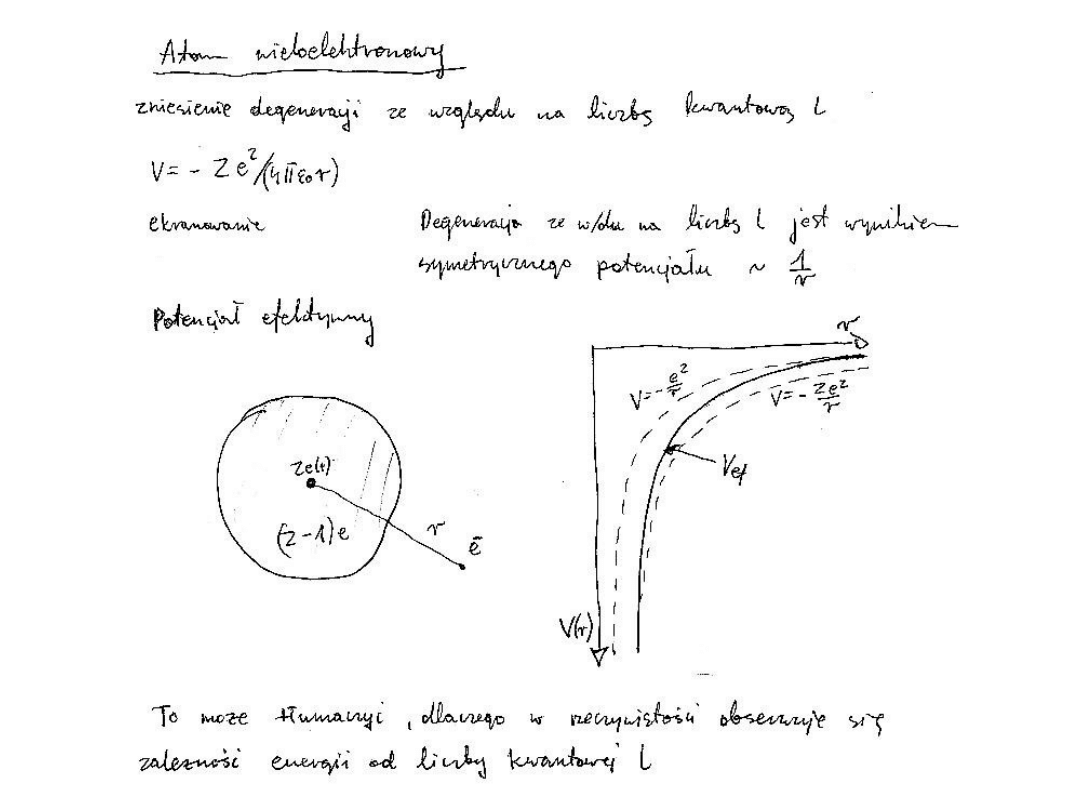 Atom wieloelektronowy
zniesienie degeneracji ze względu na liczbę kwantową l
V = - Ze²/(4πε₀r)
ekranowanie
Degeneracja ze w/du na liczbę l jest wynikiem
symetrycznego potencjału ~ 1/r
Potencjał efektywny
r
V = - e²/r
V = - Ze²/r
Vef
V(r)
Ze(+)
(Z-1)e
r
ē
To może tłumaczyć, dlaczego w rzeczywistości obserwuje się
zależność energii od liczby kwantowej l